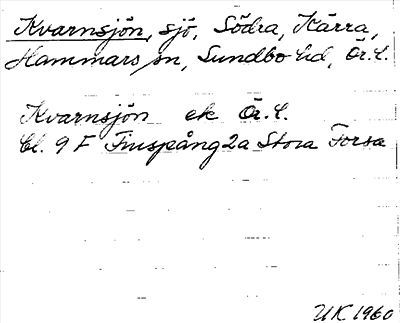 Kvarnsjön, sjö, Södra, Kärra,
Hammars sn, Sundbo hd, Ör. l.
Kvarnsjön ek Ör. l.
Bl. 9 F Finspång 2a Stora Forsa
UK 1960